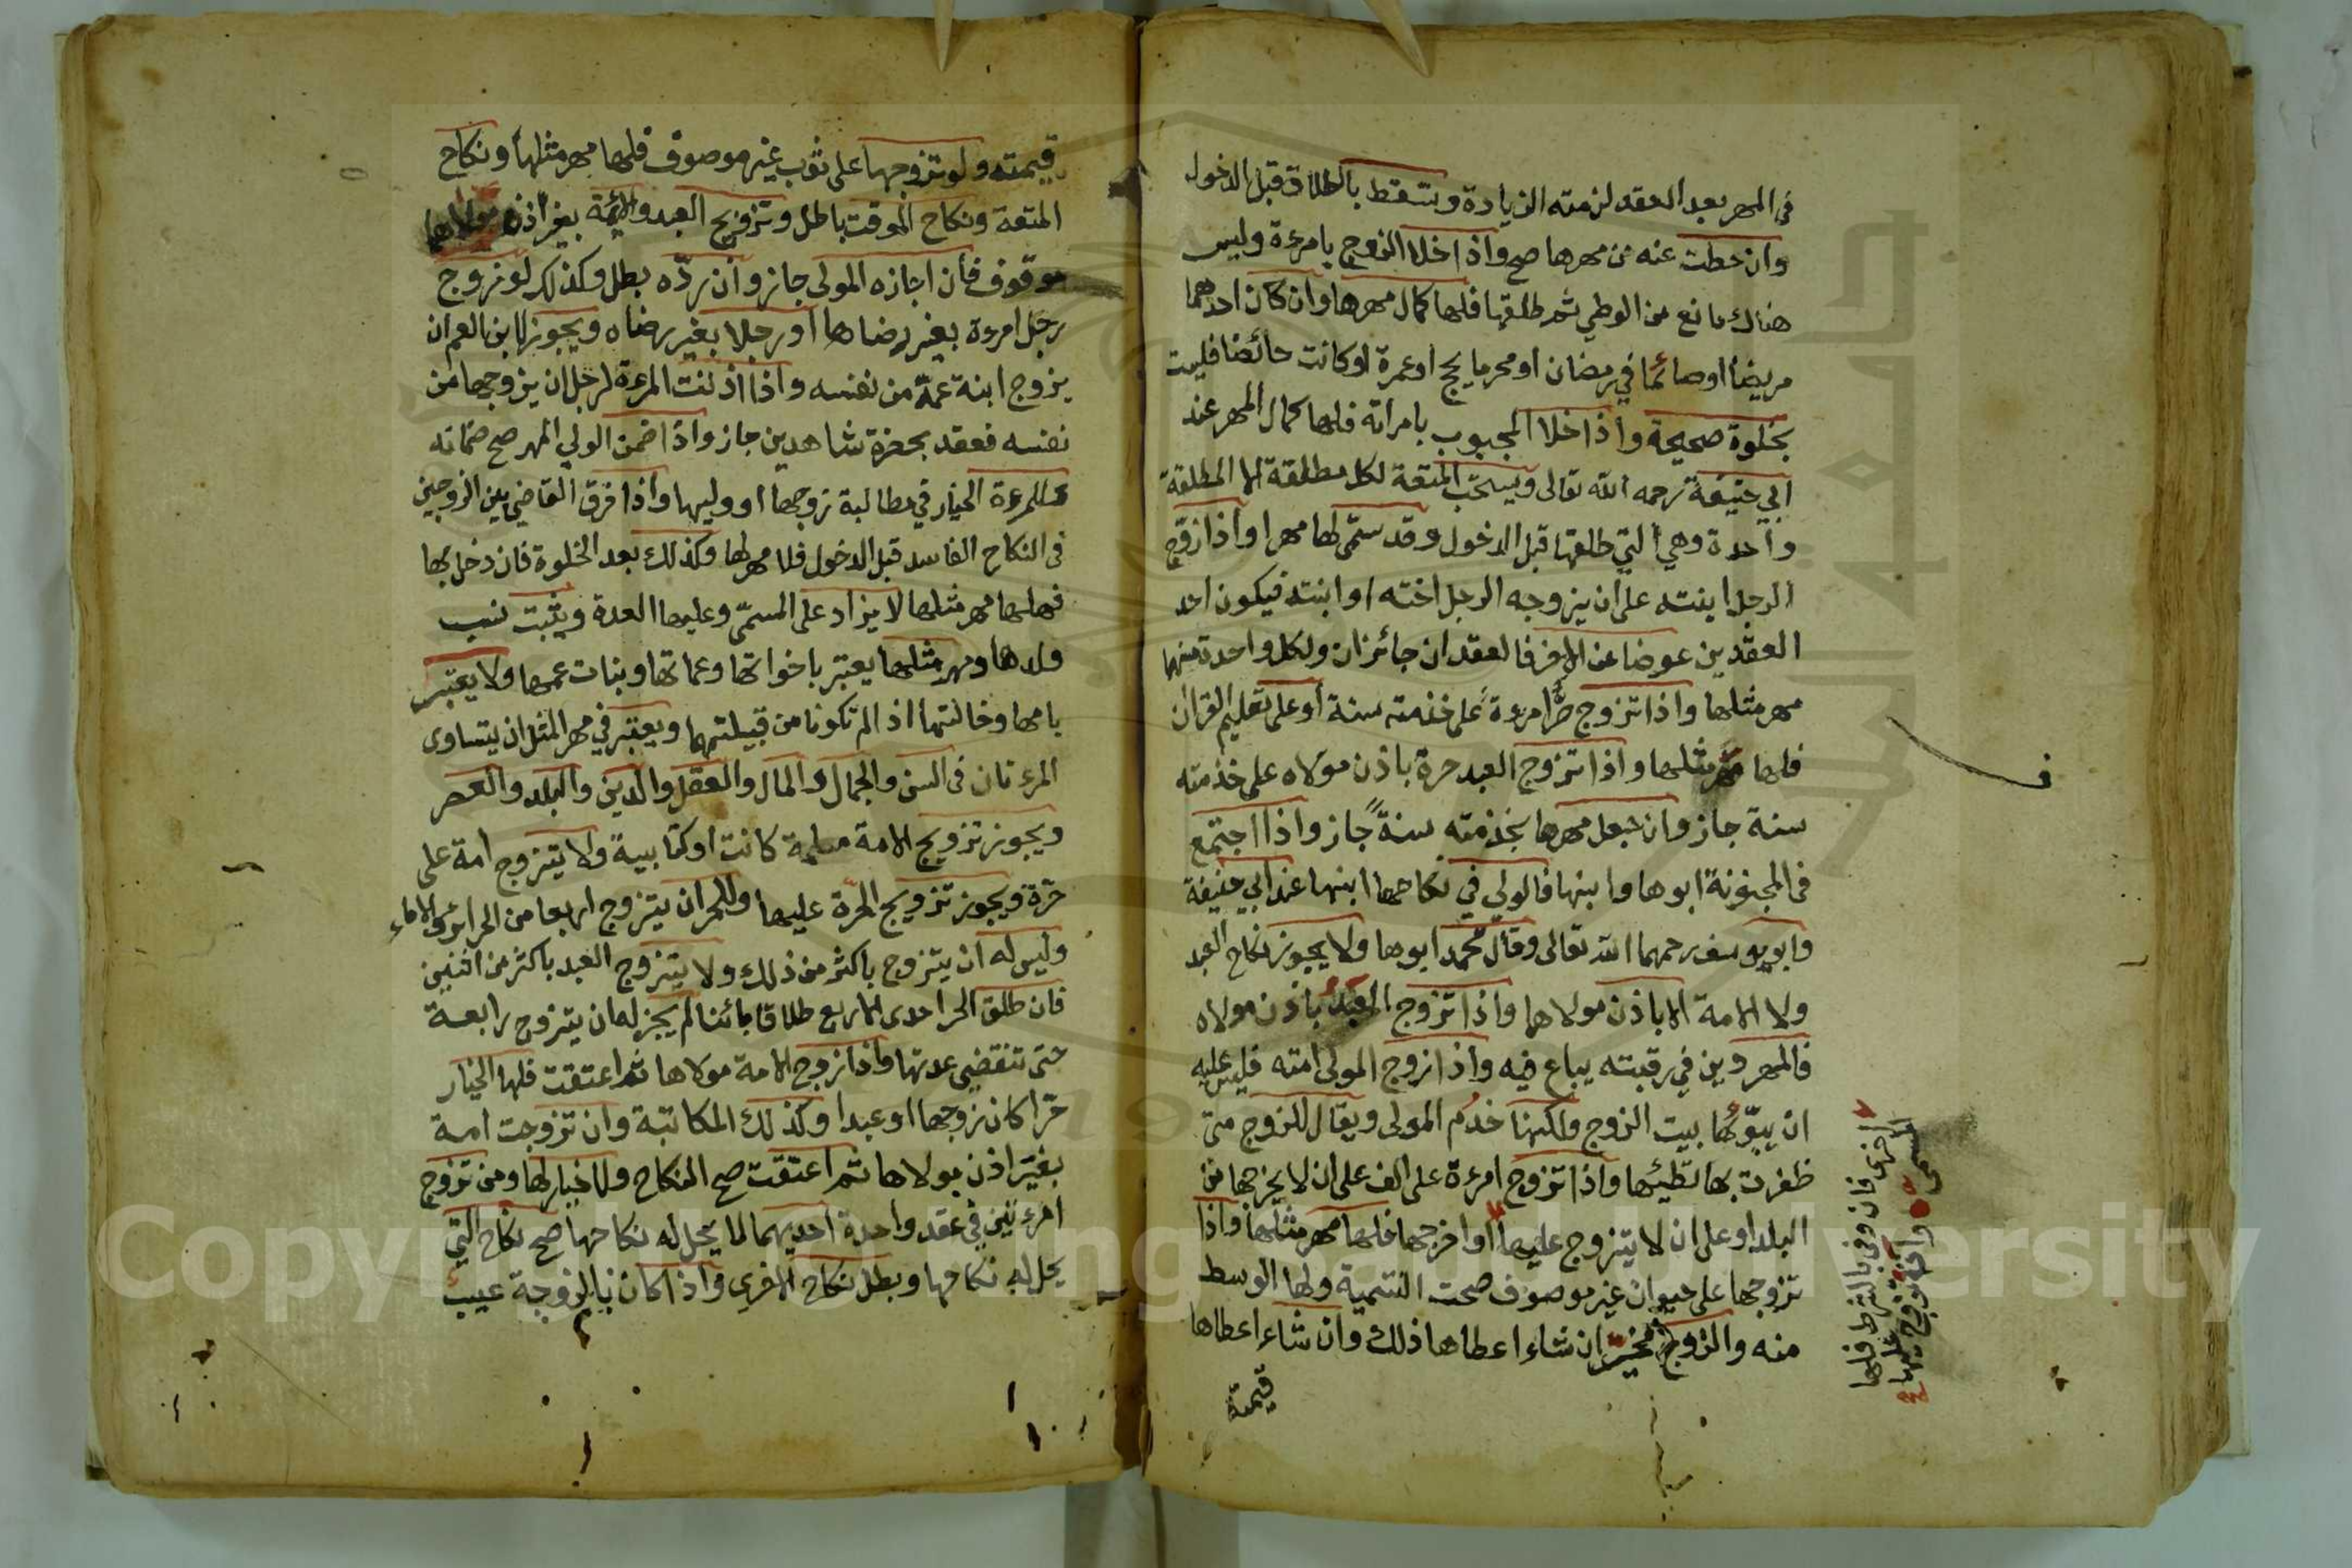 في المهر بعد العقد لزمته الزيادة وتسقط بالطلاق قبل الدخول
وان حطت عنه من مهرها صح واذا خلا الزوج بامرءة وليس
هناك مانع من الوطي ثم طلقها فلها كمال مهرها وان كان احدهما
مريضا او صائما في رمضان او محرما بحج او عمرة او كانت حائضا فليست
بخلوة صحيحة واذا خلا المجبوب بامراته فلها كمال المهر عند
ابي حنيفة رحمه الله تعالى ويستحب المتعة لكل مطلقة الا المطلقة
واحدة وهي التي طلقها قبل الدخول وقد سمّى لها مهرا واذا زوّج
الرجل ابنته على ان يزوجه الرجل اخته او ابنته فيكون احد
العقدين عوضا عن الاخر فالعقدان جائزان ولكل واحدة منهما
مهر مثلها واذا تزوج حرّ امرءة على خدمته سنة أو على تعليم القران
فلها مهر مثلها واذا تزوج العبد حرة باذن مولاه على خدمته
سنة جاز وان جعل مهرها بخدمته سنةً جاز واذا اجتمع
في المجنونة ابوها وابنها فالولي في نكاحها ابنها عند ابي حنيفة
وابو يوسف رحمهما الله تعالى وقال محمد ابوها ولا يجوز نكاح العبد
ولا الامة الا باذن مولاهما واذا تزوج العبد باذن مولاه
فالمهر دين في رقبته يباع فيه واذا زوج المولى امته فليس عليه
ان يبوّئها بيت الزوج ولكنها خدم المولى ويقال للزوج متى
ظفرت بها تطيئها واذا تزوج امرءة على الف على ان لا يخرجها من
البلد او على ان لا يتزوج عليها او اخرجها فلها مهر مثلها واذا
تزوجها على حيوان غير موصوف صحت التسمية ولها الوسط
منه والزوج مخيّر ان شاء اعطاها ذلك وان شاء اعطاها
قيمته
اخرى فان وفى بالشرط فلها
المسمى وان تزوج عليها
قيمته ولو تزوجها على ثوب غير موصوف فلها مهر مثلها ونكاح
المتعة ونكاح الموقت باطل وتزويج العبد والامة بغير اذن مولاهما
موقوف فأن اجازه المولى جاز وأن ردّه بطل وكذلك لو زوج
رجل امرءة بغير رضاها او رجلا بغير رضاه ويجوز لابن العم ان
يزوج ابنة عمّه من نفسه واذا اذنت المرءة لرجل ان يزوجها من
نفسه فعقد بحضرة شاهدين جاز واذا ضمن الولي المهر صح ضمانه
وللمرءة الخيار في مطالبة زوجها او وليها واذا فرق القاضي بين الزوجين
في النكاح الفاسد قبل الدخول فلا مهر لها وكذلك بعد الخلوة فان دخل بها
فلها مهر مثلها لا يزاد على المسمّى وعليها العدة ويثبت نسب
ولدها ومهر مثلها يعتبر باخواتها وعماتها وبنات عمها ولا يعتبر
بامها وخالتها اذ الم تكونا من قبيلتهما ويعتبر في مهر المثل ان يتساوى
المرءتان في السن والجمال والمال والعقل والدين والبلد والعصر
ويجوز تزويج الامة مسلمة كانت او كتابيةً ولا يتزوج امة على
حرّة ويجوز تزويج الحرّة عليها وللحر ان يتزوج اربعا من الحرائر والاماء
وليس له ان يتزوج باكثر من ذلك ولا يتزوج العبد باكثر من اثنين
فان طلق الحر احدى الاربع طلاقا بائنا لم يجز له ان يتزوج رابعة
حتى تنقضي عدتها واذا زوج الامة مولاها ثم اعتقت فلها الخيار
حرّا كان زوجها او عبدا وكذلك المكاتبة وان تزوجت امة
بغير اذن مولاها ثم اعتقت صح النكاح ولا خيار لها ومن تزوج
امرءتين في عقد واحدة احديهما لا يحل له نكاحها صح نكاح التي
يحل له نكاحها وبطل نكاح الاخرى واذا كان بالزوجة عيب
Copyright © King Saud University